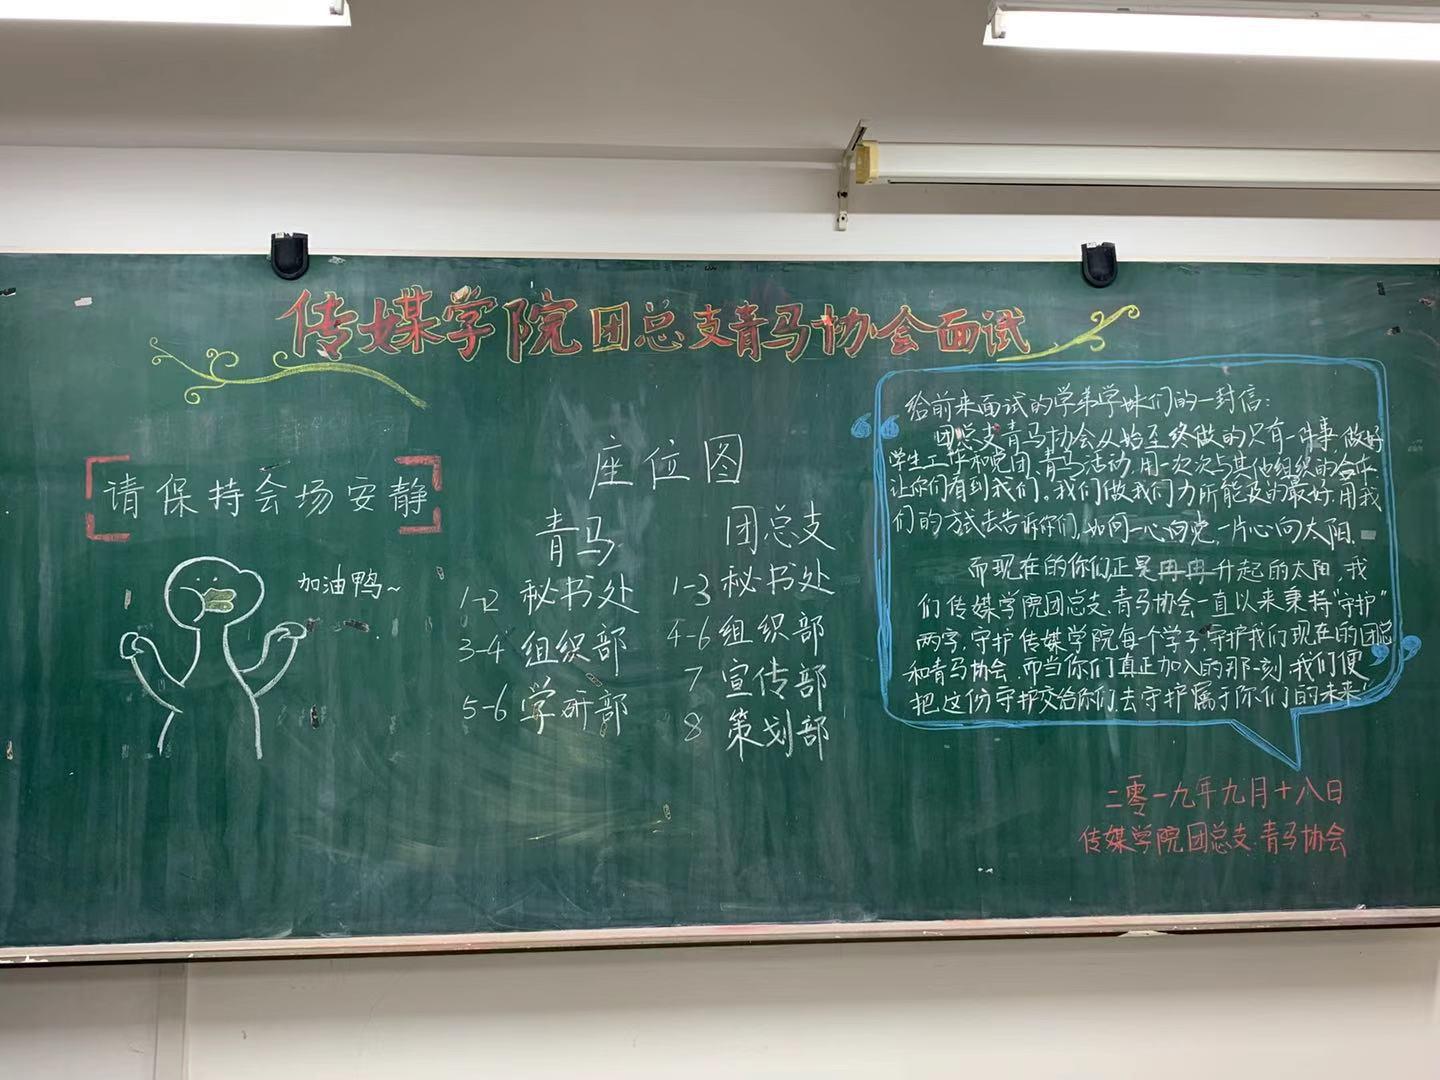 传媒学院团总支青马协会面试
请保持会场安静
加油鸭~
座位图
青马
1-2 秘书处
3-4 组织部
5-6 学研部
团总支
1-3 秘书处
4-6 组织部
7 宣传部
8 策划部
给前来面试的学弟学妹们的一封信：
团总支青马协会从始至终做的只有一件事,做好
学生工作和党团、青马活动,用一次次与其他组织的合作
让你们看到我们。我们做我们力所能及的最好,用我
们的方式去告诉你们,如何一心向党,一片心向太阳.
而现在的你们正是冉冉升起的太阳,我
们传媒学院团总支.青马协会一直以来秉持“守护”
两字,守护传媒学院每个学子,守护我们现在的团总
和青马协会.而当你们真正加入的那一刻,我们便
把这份守护交给你们,去守护属于你们的未来!
二零一九年九月十八日
传媒学院团总支.青马协会